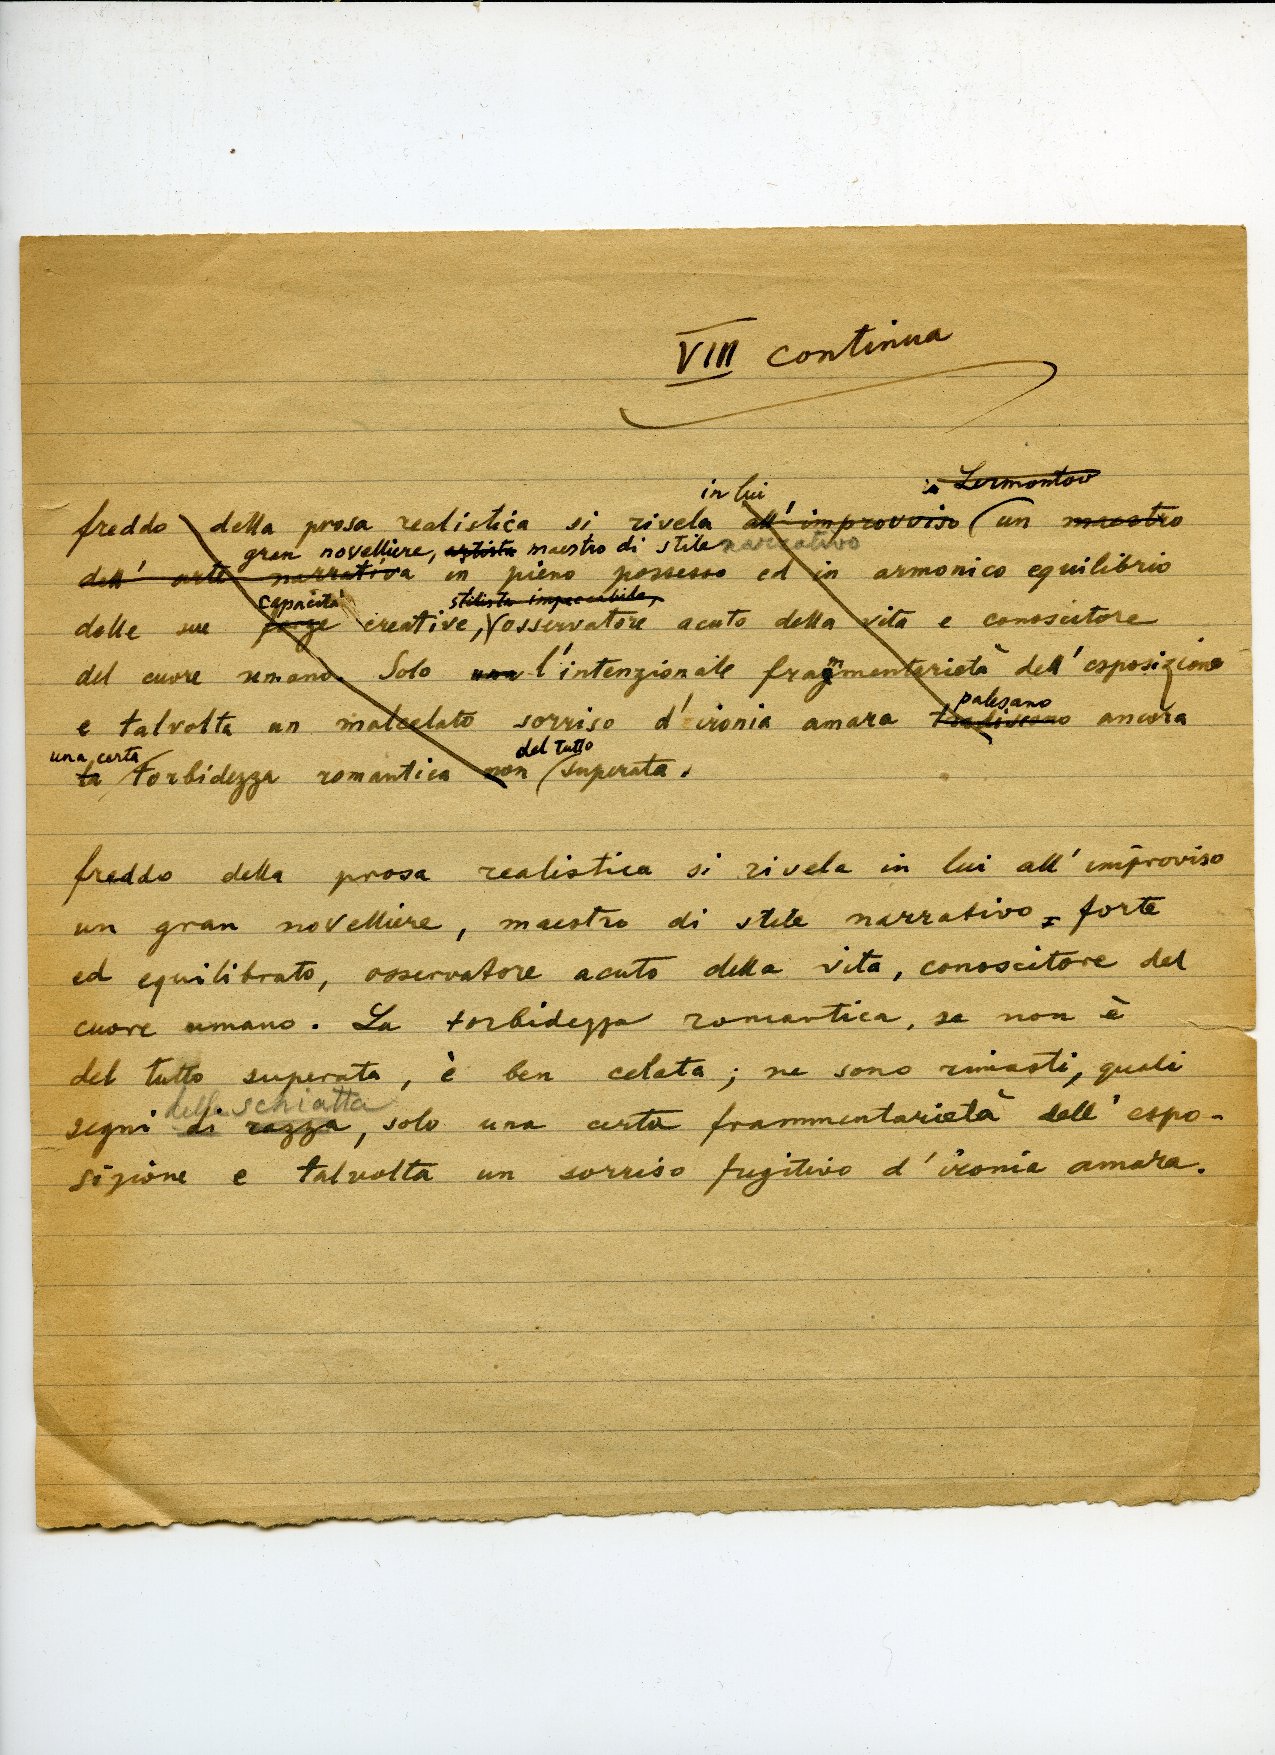 VIII continua
in lui in Lermontov
freddo della prosa realistica si rivela all'improvviso un maestro
gran novelliere, artista maestro di stile narrativo
dell'arte narrativa in pieno possesso ed in armonico equilibrio
capacità stilista impeccabile,
delle sue forze creative, osservatore acuto della vita e conoscitore
del cuore umano. Solo una l'intenzionale frammentarietà dell'esposizione
palesano
e talvolta un malcelato sorriso d'ironia amara tradiscono ancora
una certa del tutto
la torbidezza romantica non superata.
freddo della prosa realistica si rivela in lui all'improviso
un gran novelliere, maestro di stile narrativo, forte
ed equilibrato, osservatore acuto della vita, conoscitore del
cuore umano. La torbidezza romantica, se non è
del tutto superata, è ben celata; ne sono rimasti, quali
della schiatta
segni di razza, solo una certa frammentarietà dell'espo-
sizione e talvolta un sorriso fugitivo d'ironia amara.